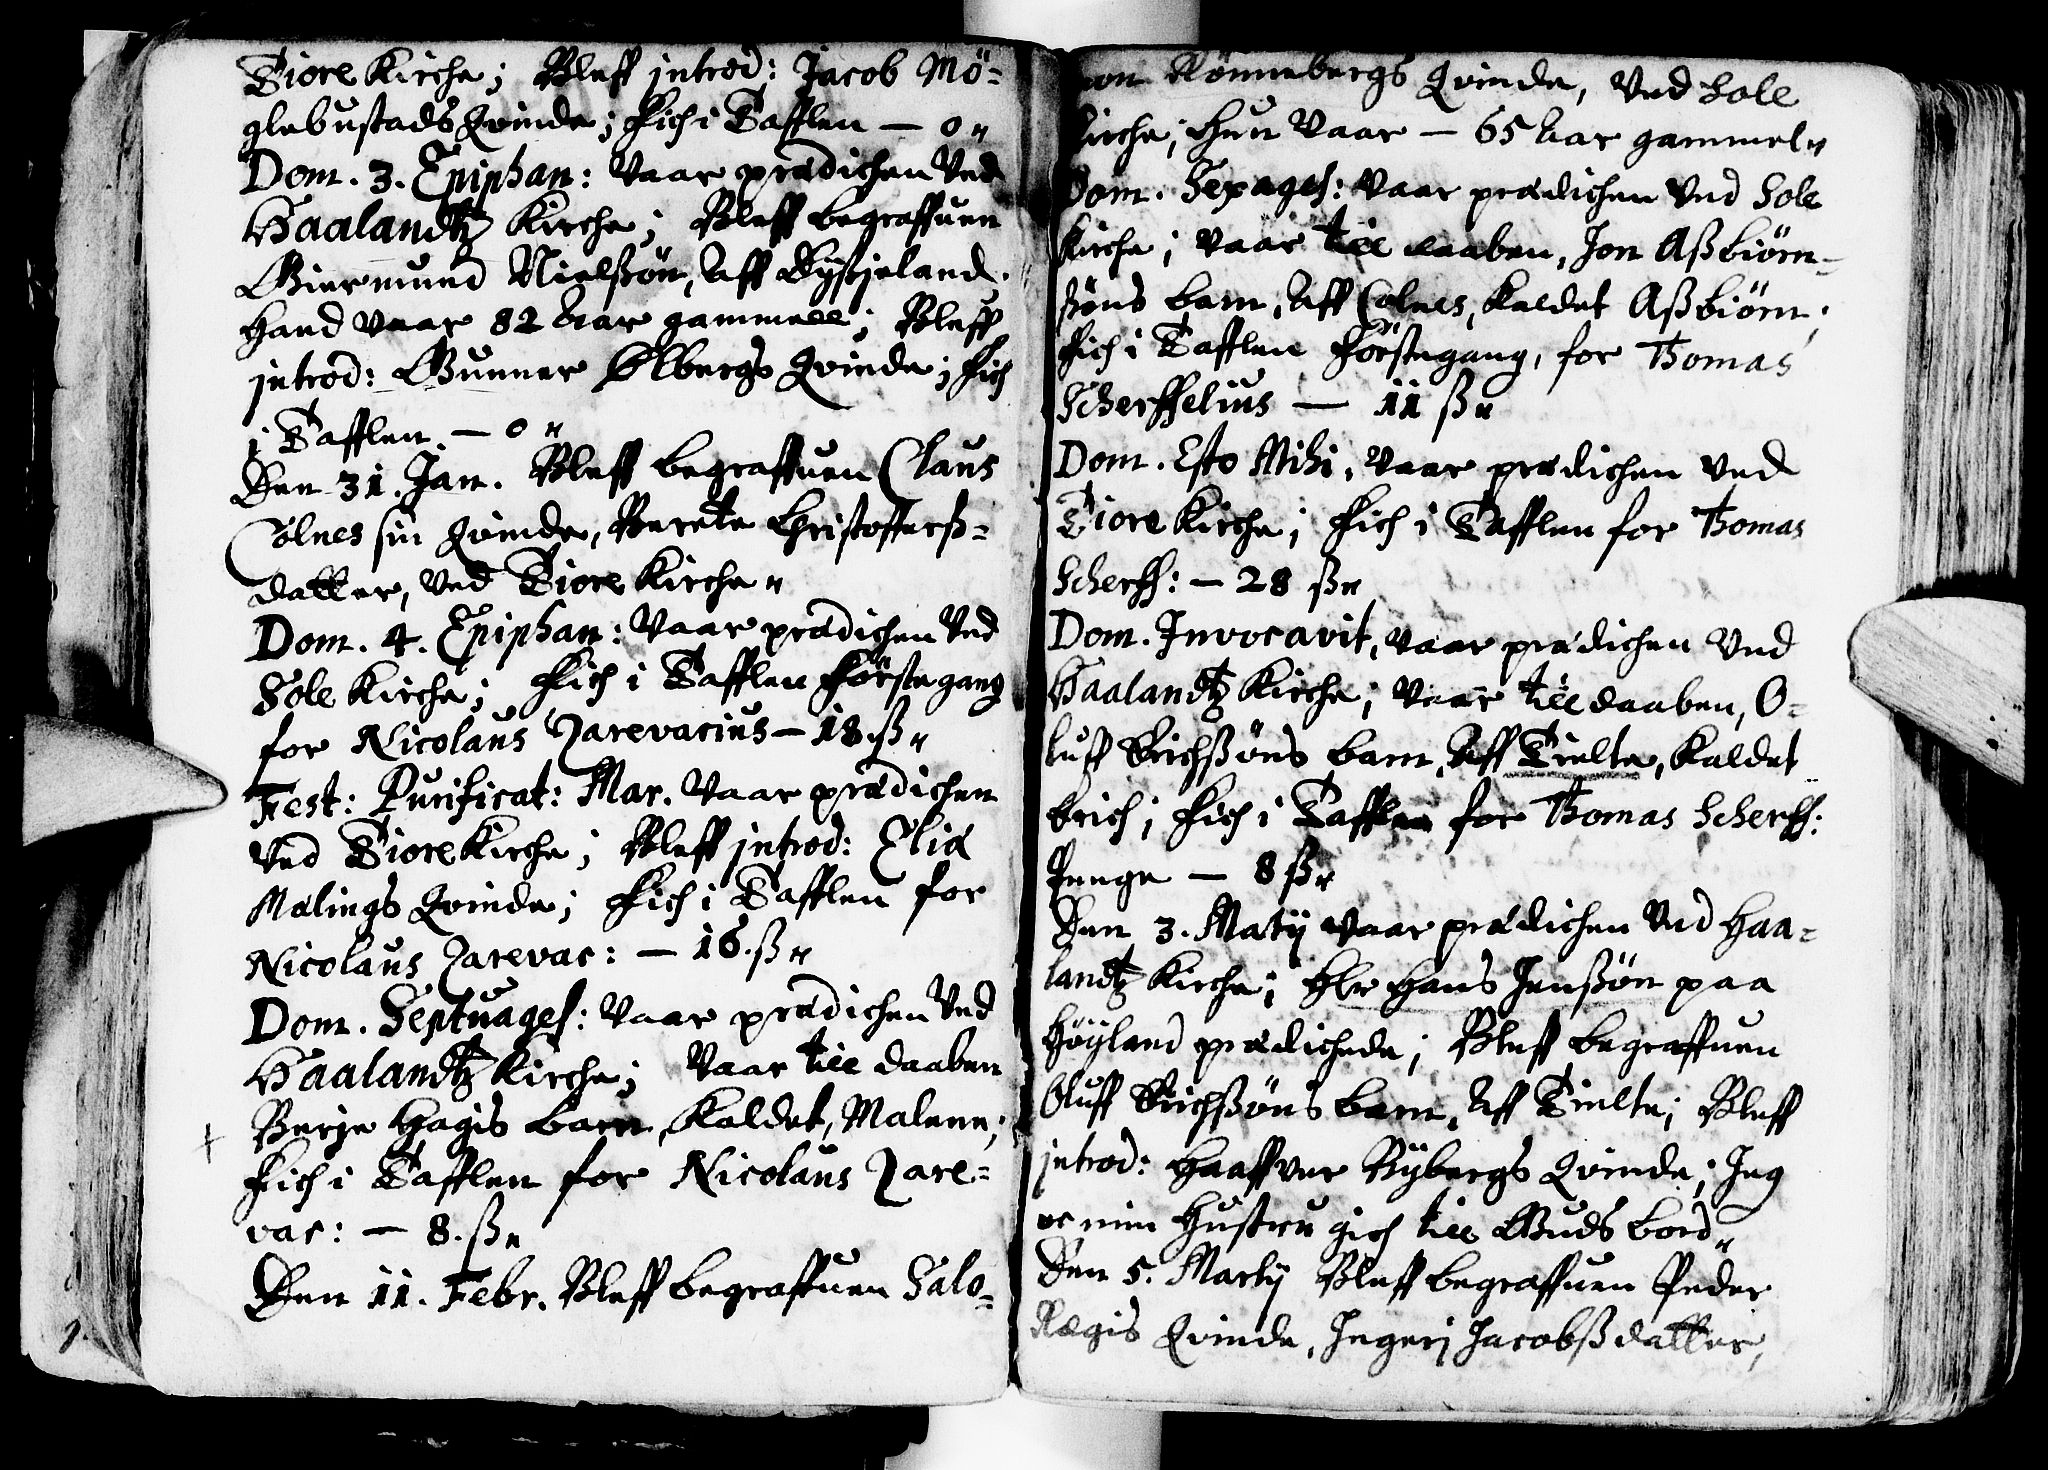 Tiore Kirche; Bleff introd: Jacob Mö-
glebustads Qvinde; Fich i Tafflen — 0 "
Dom. 3. Epiphan: Vaar prædichen Ved
Haalandtz Kirche; Bleff begraffuen
Giermund Nielßön, Aff
Hand Vaar 82 Aar gammell; Bleff
introd: Gunner Ølbergs Qvinde; Fich
i Tafflen — 0 "
Den 31. Jan. Bleff begraffuen Claus
Cölnes sin Qvinde, Berete Christofferß-
datter, Ved Tiore Kirche "
Dom. 4. Epiphan: Vaar prædichen Ved
Sole Kirche; Fich i Tafflen Förstegang
for Nicolaus Zarevacius — 18. ß "
Fest: Purificat: Mar. Vaar prædichen
Ved Tiore Kirche; Bleff introd: Eliæ
Malings Qvinde; Fich i Tafflen for
Nicolaus Zarevac: — 16. ß "
Dom. Septuages: Vaar prædichen Ved
Haalandtz Kirche; Vaar till daaben
Berje Hagis barn, Kaldet, Malene;
Fich i Tafflen for Nicolaus Zare-
vac: — 8. ß "
Den 11. Febr. Bleff begraffuen Salo-
mon Rönnebergs Qvinde, Ved Sole
Kirche; Hun Vaar — 65 Aar gammel "
Dom. Sexages: Vaar prædichen Ved Sole
Kirche; Vaar till daaben, Jon Aßbiörn-
ßöns barn, Aff Cölnes, Kaldet Aßbiörn;
Fich i Tafflen Förstegang, for Thomas
Scherffelius — 11 ß "
Dom. Esto Mihi, Vaar prædichen Ved
Tiore Kirche; Fich i Tafflen for Thomas
Scherff: — 28 ß "
Dom. Invocavit, Vaar prædichen Ved
Haalandtz Kirche; Vaar till daaben, O-
luff Erichßöns barn, Aff Tielte, Kaldet
Erich; Fich i Tafflen for Thomas Scherff:
Penge — 8 ß "
Den 3. Matij Vaar prædichen Ved Haa-
landtz Kirche; Hr Hans Jenßön paa
Höyland prædichede; Bleff begraffuen
Oluff Erichßöns barn, Aff Tielte; Bleff
introd: Haaffver Rybergs Qvinde; Jeg
oc min Hustru gich till Guds bord "
Den 5. Martij Bleff begraffuen Peder
Rægis Qvinde, Ingeri Jacobßdatter,